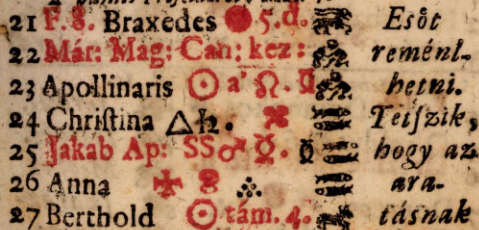 21 F 8. Braxedes 5. d. Esöt
22 Már: Mag: Can: kez: reménl-
23 Apollinaris ☉ a' ☊. ☿ hetni.
24 Chriſtina △ ♄. Tetſzik,
25 Jakab Ap: SS ♂ ☿. ☿ hogy az
26 Anna ara-
27 Berthold ☉ tám. 4. tásnak